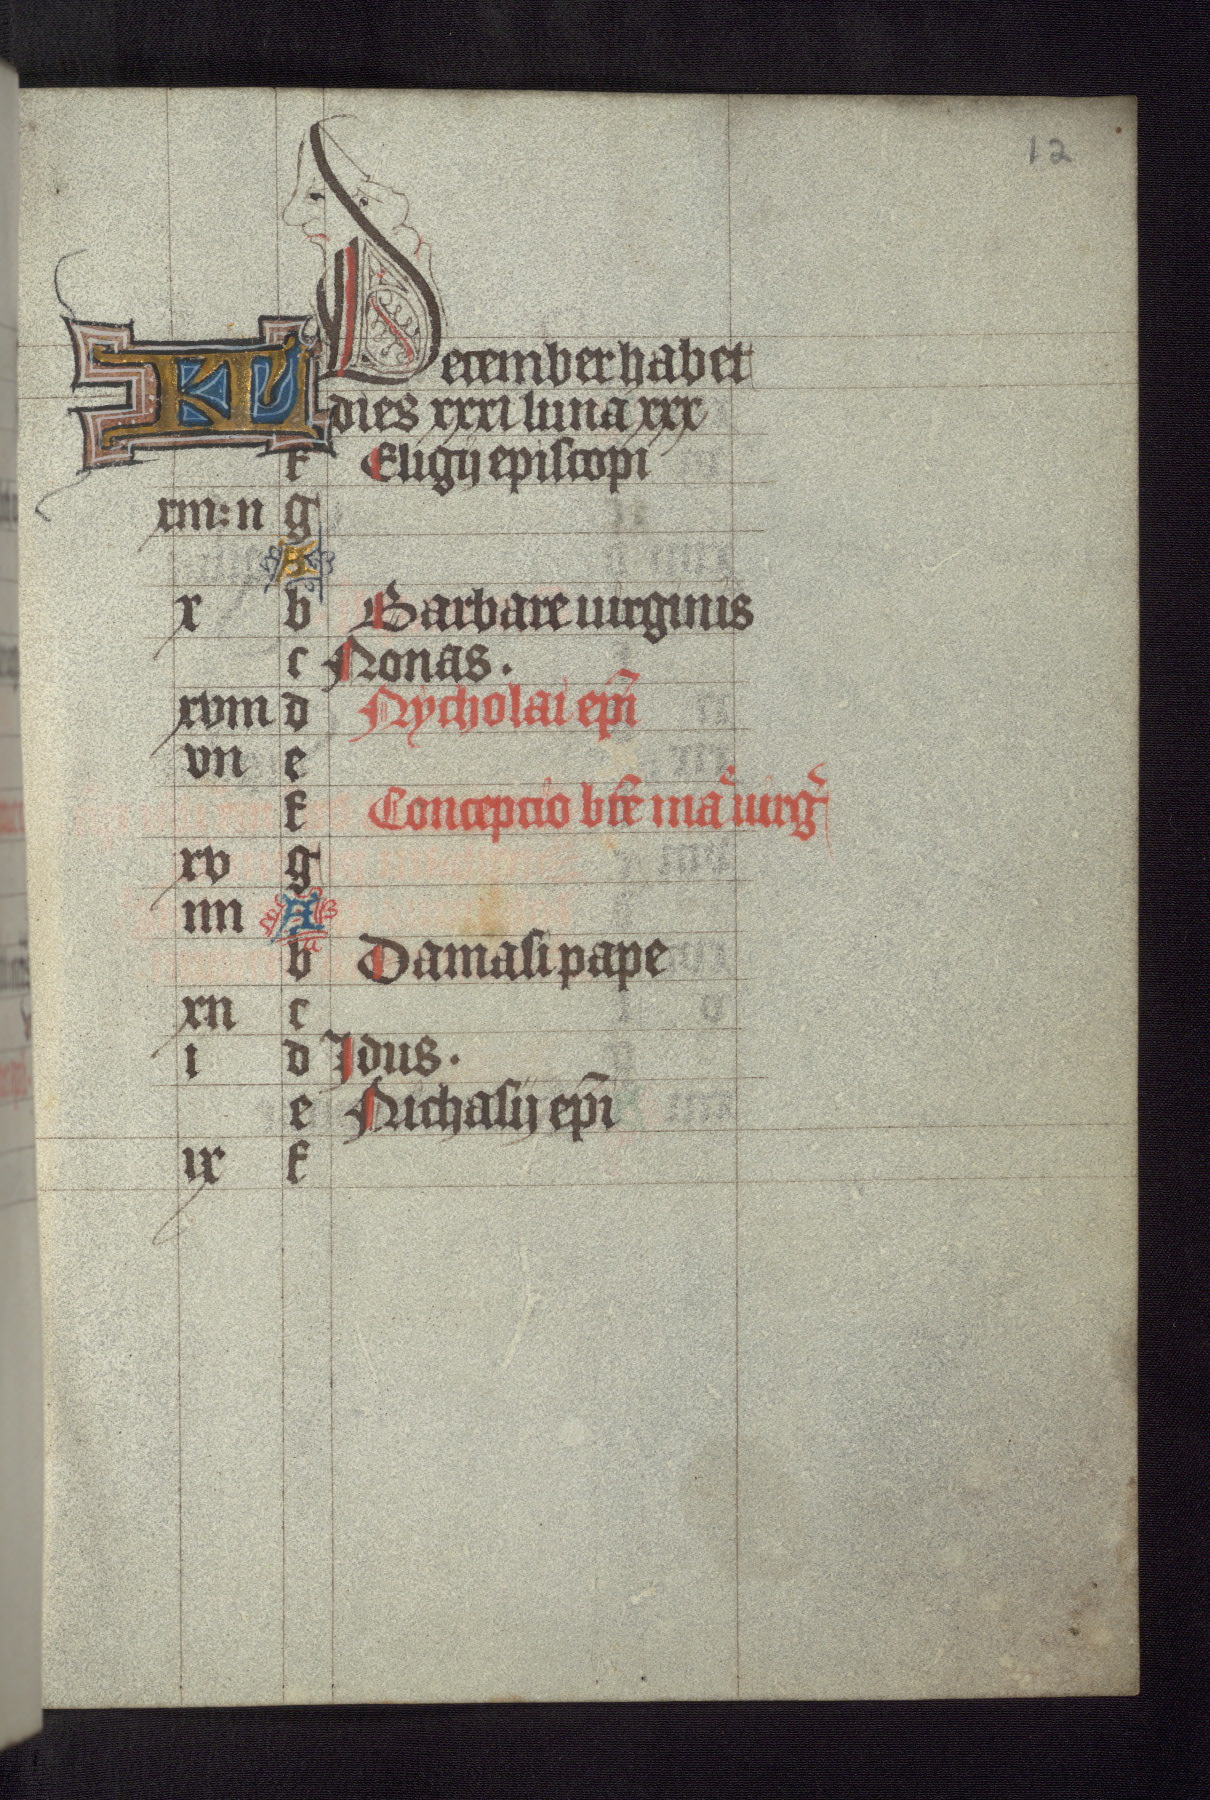 12
KL December habet
dies xxxi luna xxx
f Eligij episcopi
xiii: ii g
A
x b Barbare uirginis
c Nonas.
xviii d Nycholai ep̄i
vii e
f Concepcio bt̄e ma uirg
xv g
iiii A
b Damasi pape
xii c
i d Idus.
e Nichasij ep̄i
ix f